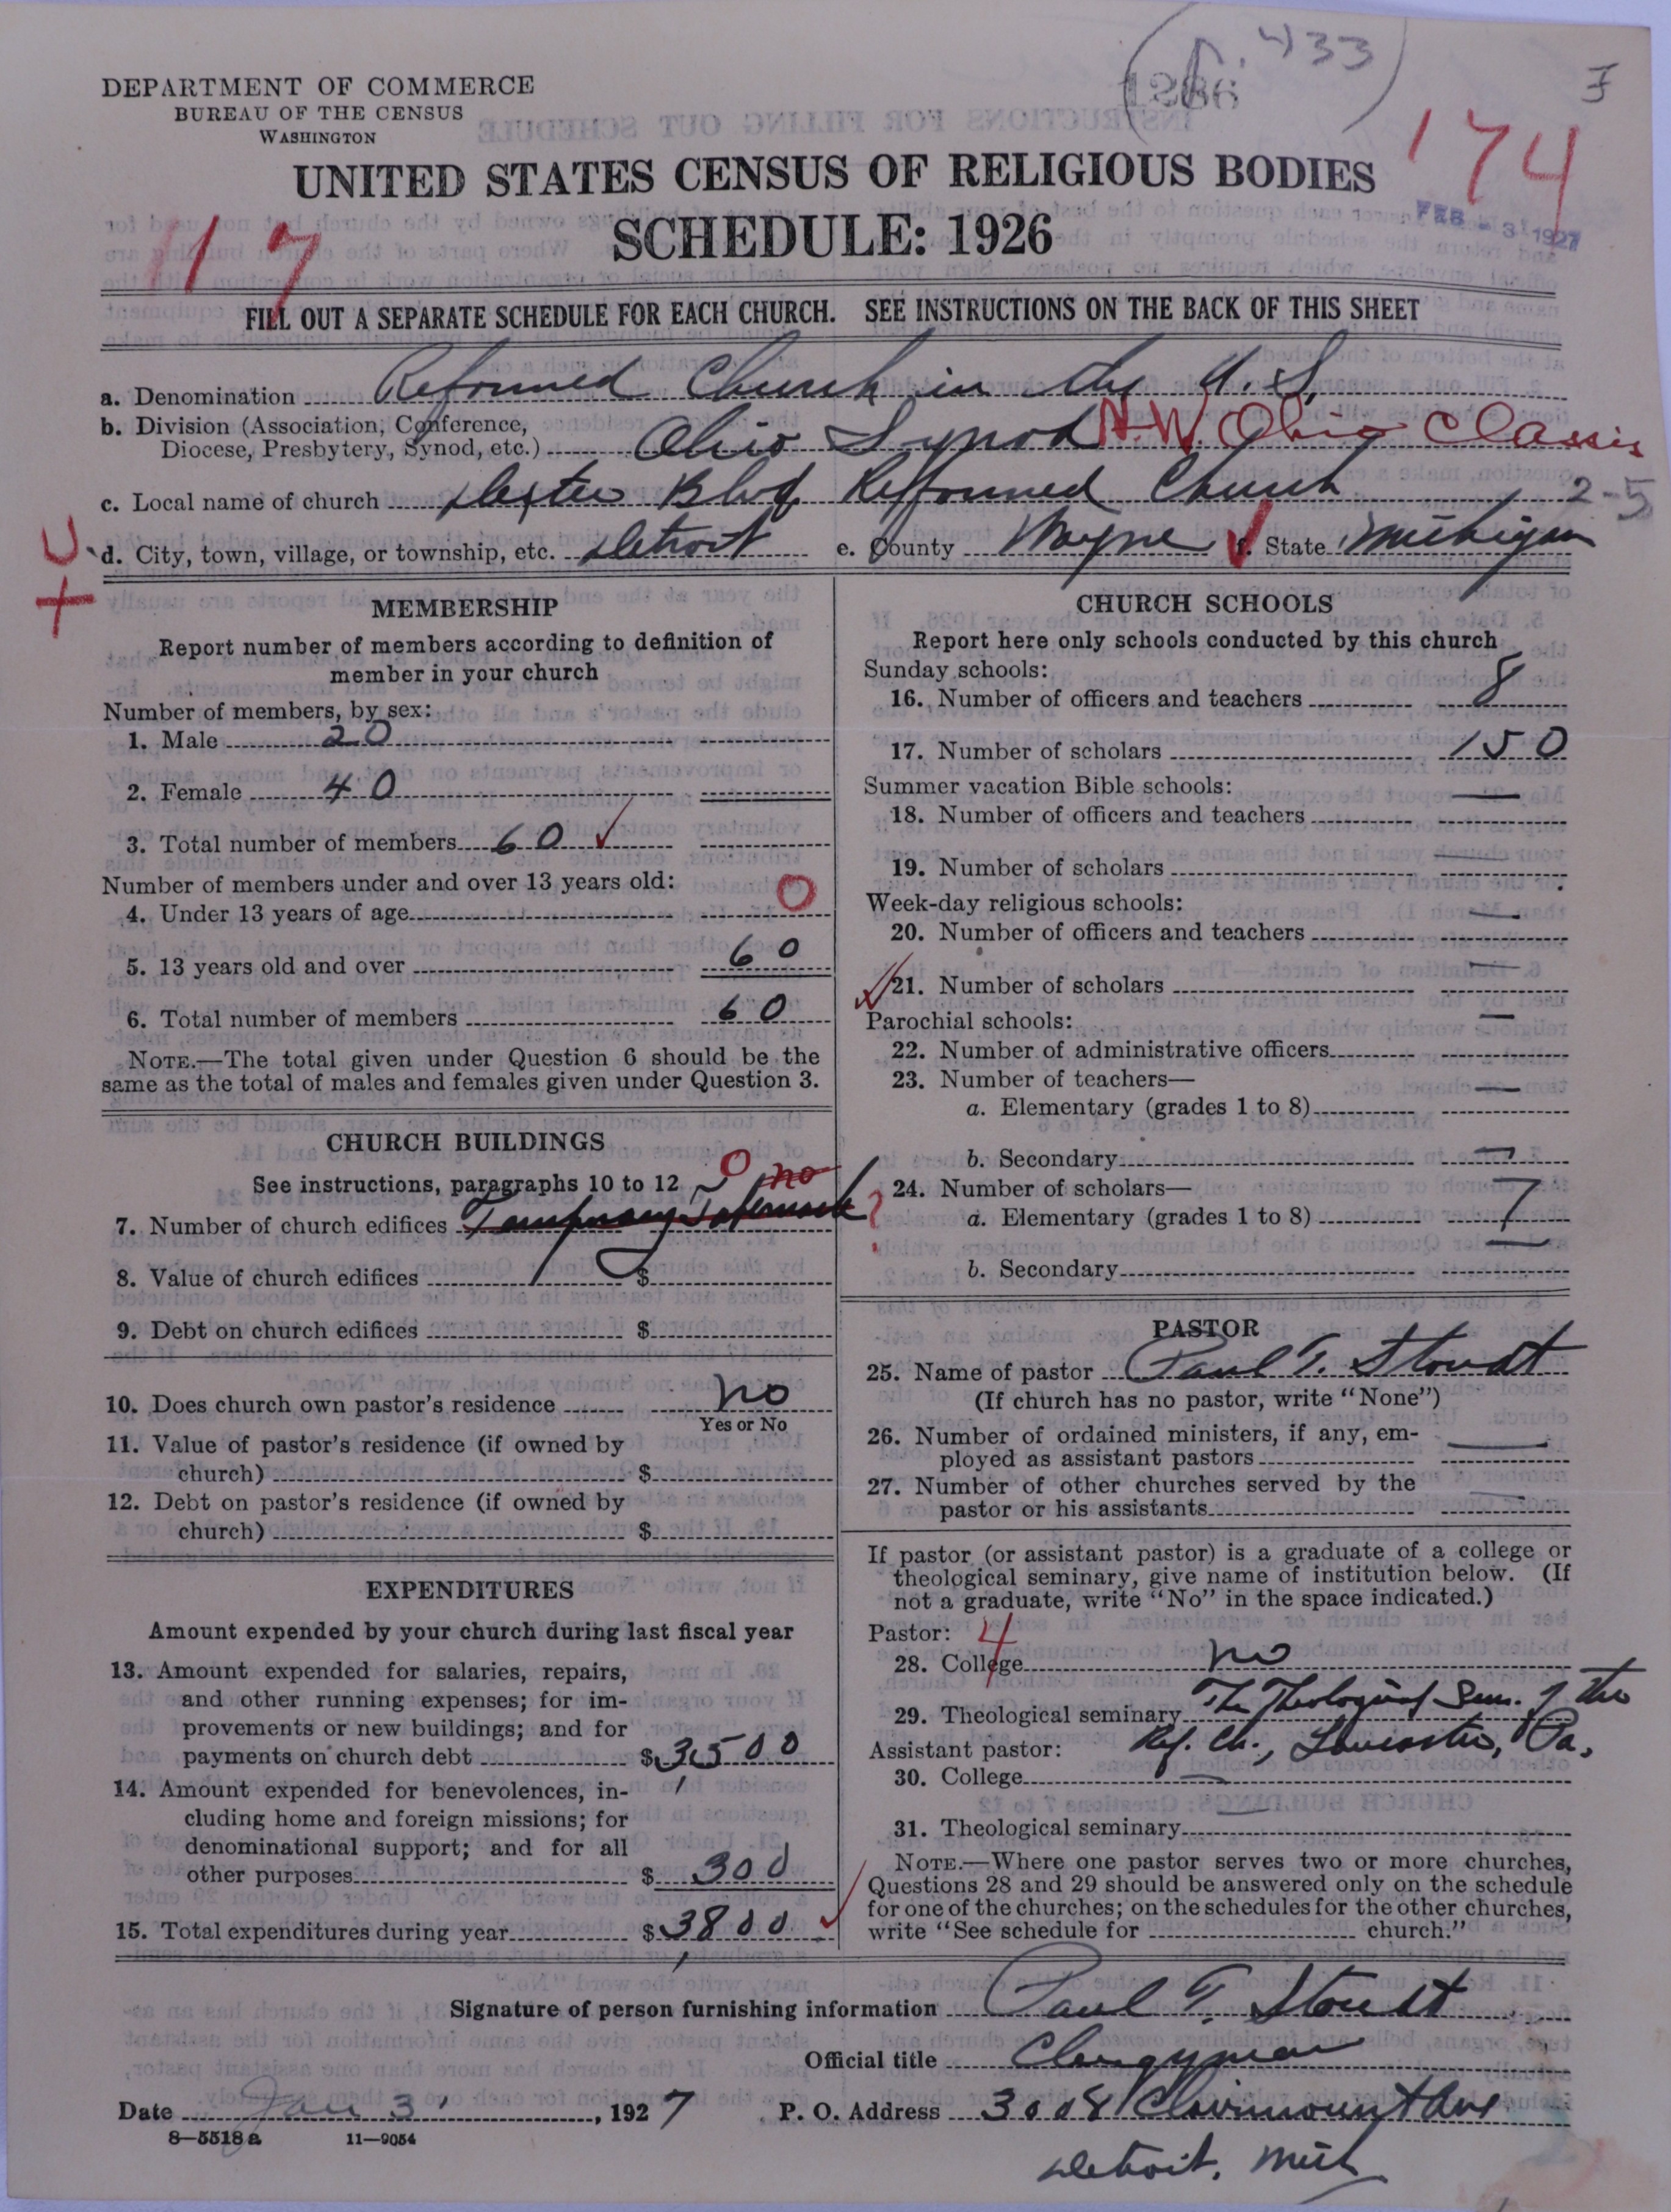 (p. 433)
1286
J
DEPARTMENT OF COMMERCE
BUREAU OF THE CENSUS
WASHINGTON
174
UNITED STATES CENSUS OF RELIGIOUS BODIES
SCHEDULE: 1926
FEB - 3 1927
17
FILL OUT A SEPARATE SCHEDULE FOR EACH CHURCH. SEE INSTRUCTIONS ON THE BACK OF THIS SHEET
a. Denomination Reformed Church in the U.S.
b. Division (Association, Conference,
Diocese, Presbytery, Synod, etc.) Ohio Synod N.W. Ohio Classis
c. Local name of church Dexter Blvd Reformed Church 2-5
d. City, town, village, or township, etc. Detroit e. County Wayne f. State Michigan
MEMBERSHIP
Report number of members according to definition of
member in your church
Number of members, by sex:
1. Male 20
2. Female 40
3. Total number of members 60
Number of members under and over 13 years old:
4. Under 13 years of age 0
5. 13 years old and over 60
6. Total number of members 60
NOTE.—The total given under Question 6 should be the
same as the total of males and females given under Question 3.
CHURCH BUILDINGS
See instructions, paragraphs 10 to 12 0 no
7. Number of church edifices Temporary Tabernacle ?
8. Value of church edifices $
9. Debt on church edifices $
10. Does church own pastor's residence no
Yes or No
11. Value of pastor's residence (if owned by
church) $
12. Debt on pastor's residence (if owned by
church) $
EXPENDITURES
Amount expended by your church during last fiscal year
13. Amount expended for salaries, repairs,
and other running expenses; for im-
provements or new buildings; and for
payments on church debt $3,500
14. Amount expended for benevolences, in-
cluding home and foreign missions; for
denominational support; and for all
other purposes $ 300
15. Total expenditures during year $3,800
CHURCH SCHOOLS
Report here only schools conducted by this church
Sunday schools:
16. Number of officers and teachers 8
17. Number of scholars 150
Summer vacation Bible schools:
18. Number of officers and teachers —
19. Number of scholars —
Week-day religious schools:
20. Number of officers and teachers —
21. Number of scholars —
Parochial schools:
22. Number of administrative officers —
23. Number of teachers—
a. Elementary (grades 1 to 8) —
b. Secondary —
24. Number of scholars—
a. Elementary (grades 1 to 8)
b. Secondary —
PASTOR
25. Name of pastor Paul T. Stoudt
(If church has no pastor, write "None")
26. Number of ordained ministers, if any, em-
ployed as assistant pastors —
27. Number of other churches served by the
pastor or his assistants —
If pastor (or assistant pastor) is a graduate of a college or
theological seminary, give name of institution below. (If
not a graduate, write "No" in the space indicated.)
Pastor: 4
28. College no
29. Theological seminary The Theological Sem. of the
Assistant pastor: Ref. Ch., Lancaster, Pa.
30. College —
31. Theological seminary —
NOTE.—Where one pastor serves two or more churches,
Questions 28 and 29 should be answered only on the schedule
for one of the churches; on the schedules for the other churches,
write "See schedule for church."
Signature of person furnishing information Paul T. Stoudt
Official title Clergyman
Date Jan 3, 1927 P. O. Address 3008 Clairmount Ave
8—5518 a 11—9054
Detroit, Mich